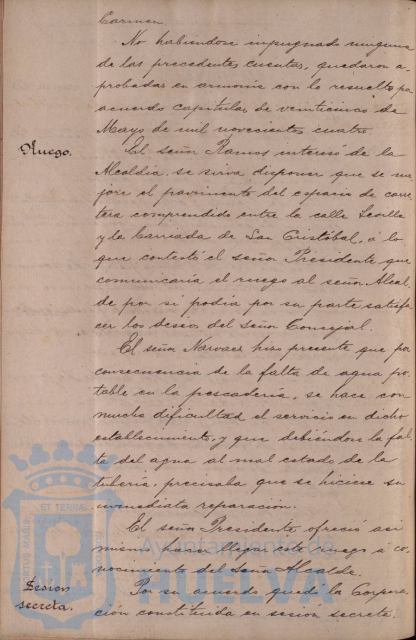 Carmen.
No habiéndose impugnado ninguna
de las precedentes cuentas, quedaron a-
probadas en armonía con lo resuelto pr.
acuerdo capitular de veinticinco de
Mayo de mil novecientos cuatro.
Ruego.
El señor Ramos interesó de la
Alcaldía, se sirva disponer que se me
jore el pavimento del espacio de carre
tera comprendido entre la calle Sevilla
y la barriada de San Cristóbal, á lo
que contestó el señor Presidente que
comunicaría el ruego al señor Alcal
de por si podía por su parte satisfa
cer los deseos del señor Concejal.
El señor Narvaez hizo presente que por
consecuencia de la falta de agua po-
table en la pescadería, se hace con
mucha dificultad el servicio en dicho
establecimiento, y que debiéndose la fal
ta del agua al mal estado de la
tubería, precisaba que se hiciese su
inmediata reparación.
El señor Presidente ofreció asi
mismo hacer llegar este ruego á co-
nocimiento del Señor Alcalde.
Sesion
secreta.
Por su acuerdo quedó la Corpora-
ción constituida en sesión secreta.
Ayuntamiento de
HUELVA